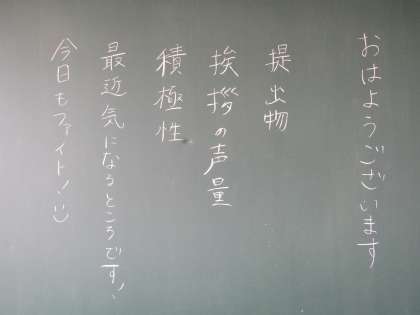 おはようございます
提出物
挨拶の声量
積極性
最近気になるところです!、
今日もファイト!:)